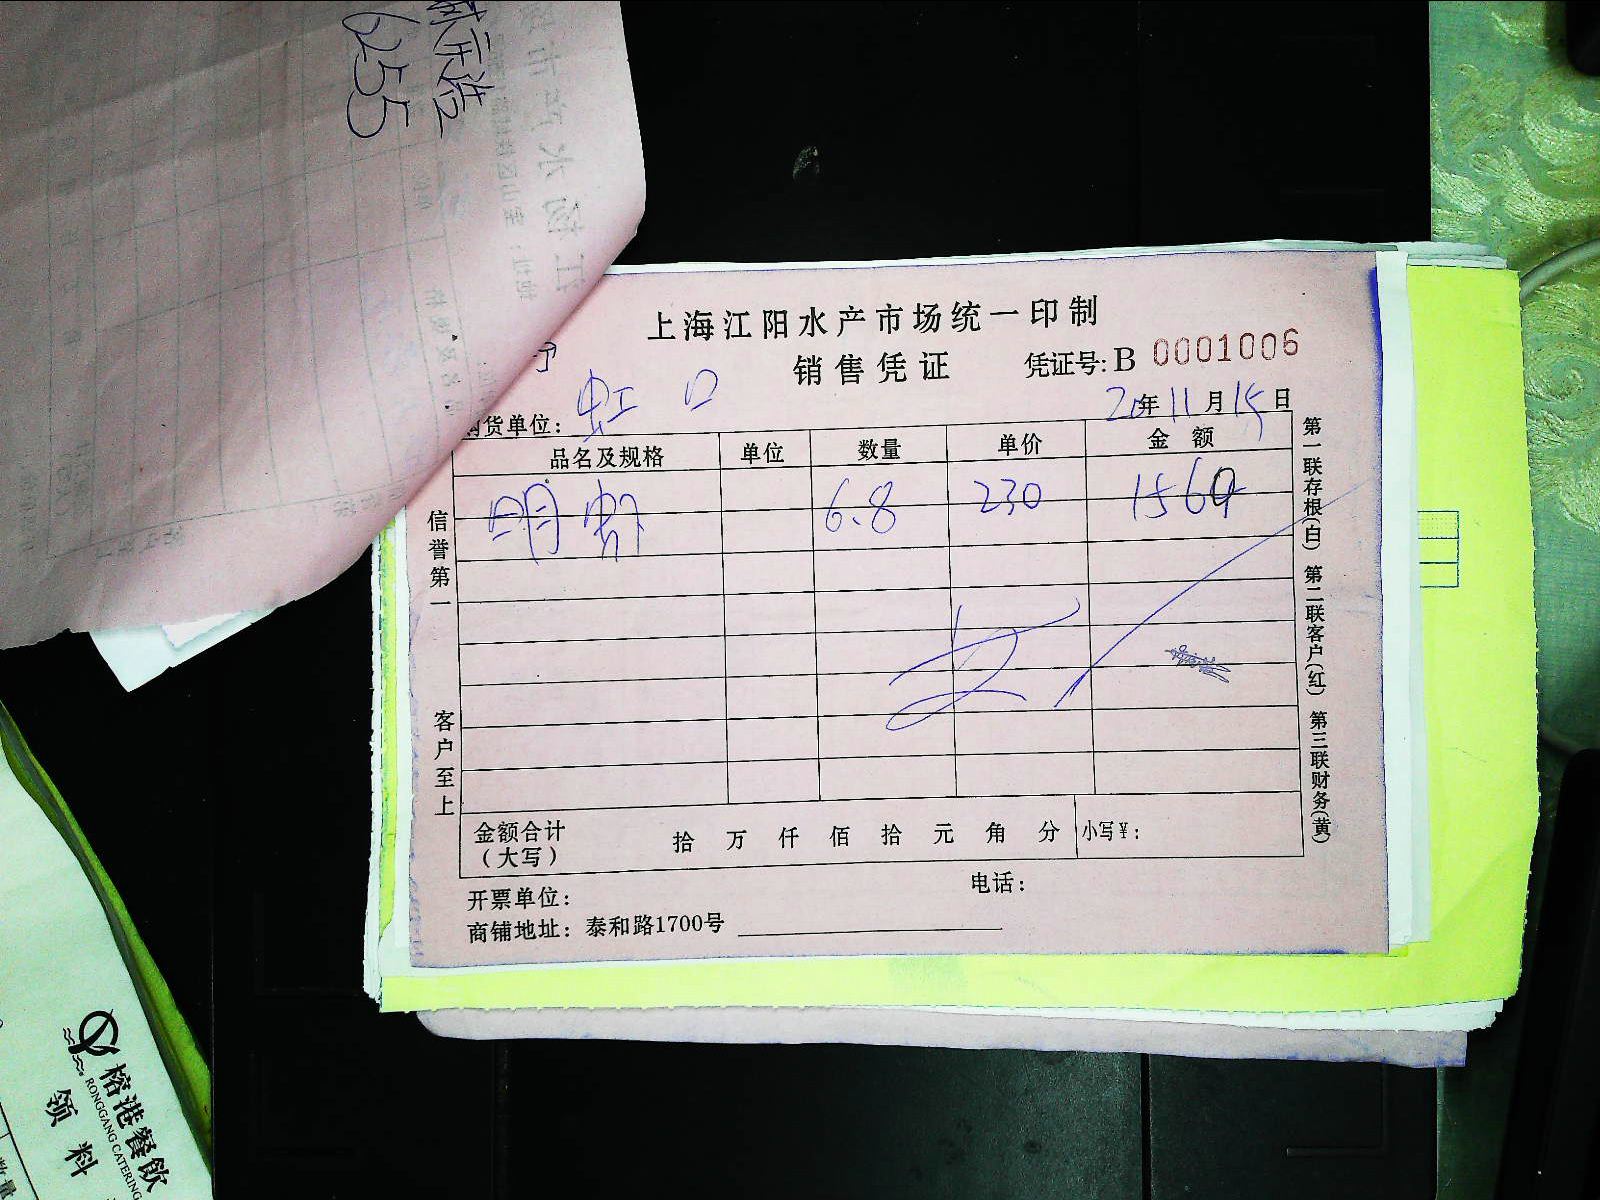 6255
上海江阳水产市场统一印制
销售凭证 凭证号: B 0001006
购货单位: 虹口 20年11月15日
品名及规格 单位 数量 单价 金额
明虾 6.8 230 1560
信誉第一
客户至上
第一联存根(白) 第二联客户(红) 第三联财务(黄)
金额合计(大写) 拾 万 仟 佰 拾 元 角 分 小写¥:
开票单位: 电话:
商铺地址: 泰和路1700号
榕港餐飲
RONGGANG CATERING
领料